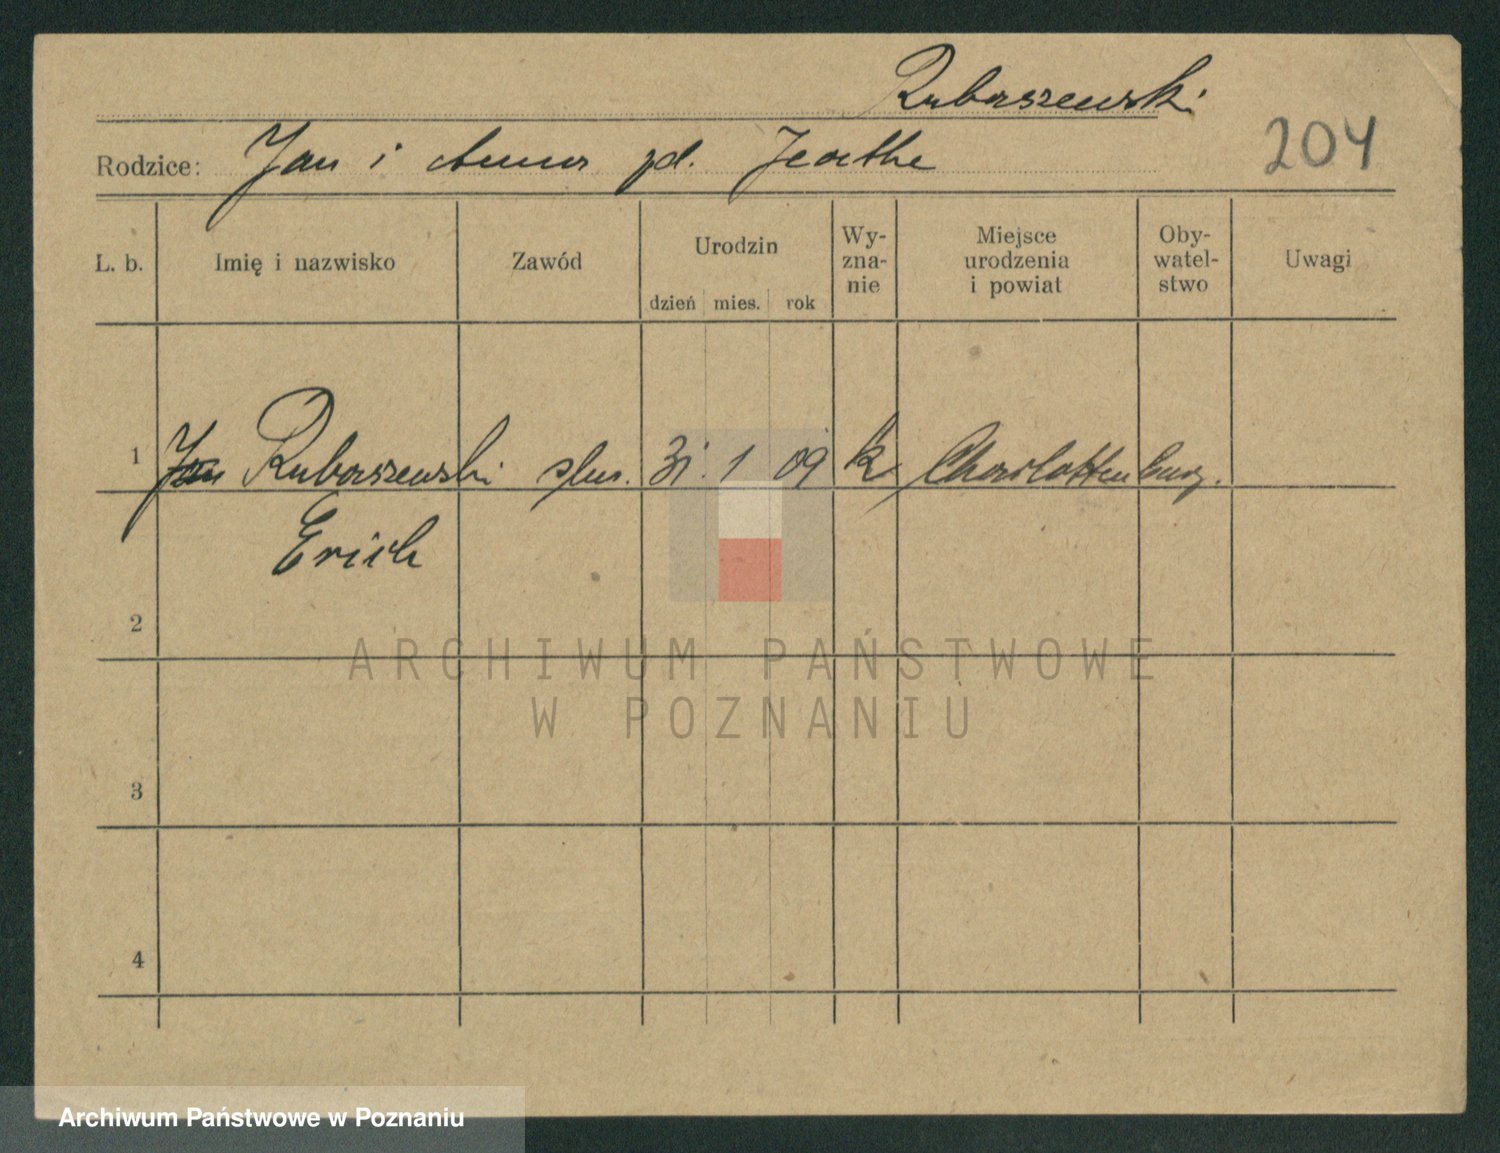 Rubaszewski
Rodzice: Jan i Anna zd. Jeathe
204
L. b. Imię i nazwisko Zawód Urodzin dzień mies. rok Wy-zna-nie Miejsce urodzenia i powiat Oby-watel-stwo Uwagi
1 Jan Rubaszewski ślus. 31. 1 09 k Charlottenburg.
Erich
2
3
4
ARCHIWUM PAŃSTWOWE
W POZNANIU
Archiwum Państwowe w Poznaniu